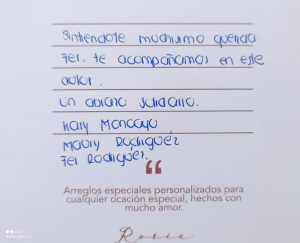 Sintiendote muchisimo querida
Fer. te acompañamos en este
dolor.
un abrazo solidario.
Kary Moncayo
Maury Rodriguez
Fer Rodriguez.
“
Arreglos especiales personalizados para
cualquier ocación especial, hechos con
mucho amor.
Rosie